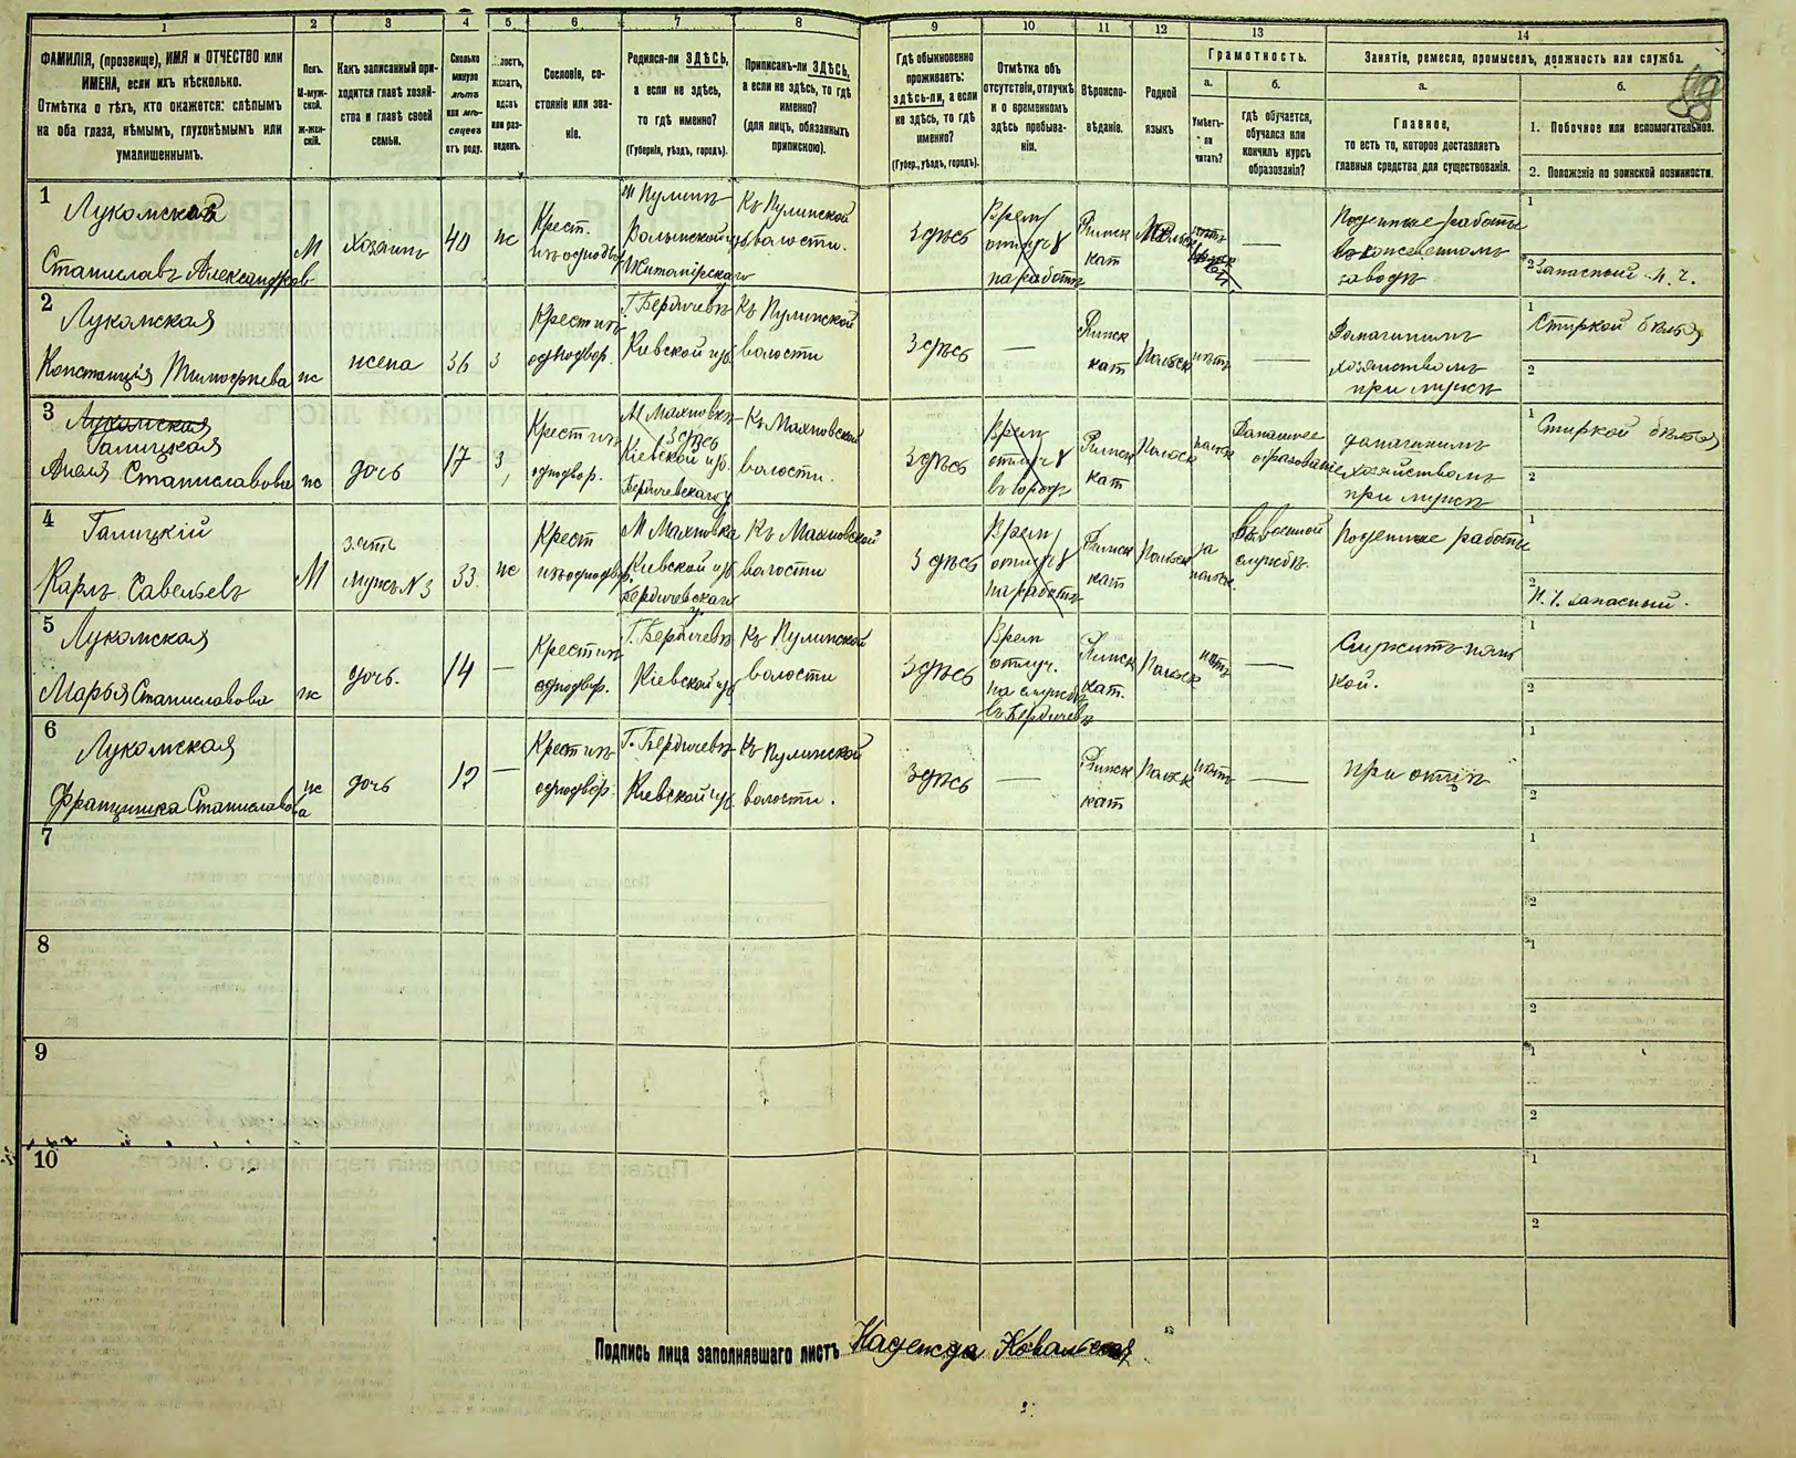 1 2 3 4 5 6 7 8 9 10 11 12 13 14
ФАМИЛІЯ, (прозвище), ИМЯ и ОТЧЕСТВО или
ИМЕНА, если ихъ нѣсколько.
Отмѣтка о тѣхъ, кто окажется: слѣпымъ
на оба глаза, нѣмымъ, глухонѣмымъ или
умалишеннымъ.
Полъ.
М-муж-
ской.
ж-жен-
скій.
Какъ записанный при-
ходится главѣ хозяй-
ства и главѣ своей
семьи.
Сколько
минуло
лѣтъ
или мѣ-
сяцевъ
отъ роду.
Сословіе, со-
стояніе или зва-
ніе.
Родился-ли ЗДѢСЬ,
а если не здѣсь,
то гдѣ именно?
(Губернія, уѣздъ, городъ).
Приписанъ-ли ЗДѢСЬ,
а если не здѣсь, то гдѣ
именно?
(для лицъ, обязанныхъ
припискою).
Гдѣ обыкновенно
проживаетъ:
здѣсь-ли, а если
не здѣсь, то гдѣ
именно?
(Губер., уѣздъ, городъ).
Отмѣтка объ
отсутствіи, отлучкѣ
и о временномъ
здѣсь пребыва-
ніи.
Вѣроиспо-
вѣданіе.
Родной
языкъ
Грамотность.
а.
Умѣетъ-
ли
читать?
б.
гдѣ обучается,
обучался или
кончилъ курсъ
образованія?
Занятіе, ремесло, промыселъ, должность или служба.
а.
Главное,
то есть то, которое доставляетъ
главныя средства для существованія.
б.
1. Побочное или вспомогательное.
2. Положеніе по воинской повинности.
1
Станиславъ Александровъ
М
хозяинъ
40
Крест.
Къ Пулинской
волости.
здѣсь
Врем
отлуч
на работѣ
Римск
кат
Поденные работы
заводѣ
1
2 Запасный н. ч.
2
Лукомская
Констанція Тимофѣева
ж
жена
36
з
Крест изъ
однодвор.
Г. Бердичевъ
Кіевской губ.
Къ Пулинской
волости
здѣсь
—
Римск
кат
Польск
нѣтъ
—
Домашнимъ
хозяйствомъ
при мужѣ
1 Стиркой бѣлья
2
3
Лукомская
Галицкая
Станиславова
ж
дочь
17
з
Крест изъ
однодвор.
М Махновкѣ
здѣсь
Кіевской губ.
Бердичевскаго у
Къ Махновской
волости.
здѣсь
Врем
отлуч
Римск
кат
Польск
Домашнее
образованіе
домашнимъ
хозяйствомъ
при мужѣ
1 Стиркой бѣлья
2
4
Галицкій
Карлъ Савельевъ
М
зять
мужъ N 3
33
Крест
изъ однодвор.
М Махновка
Кіевской губ
Бердичевскаго
у.
Къ Махновской
волости
здѣсь
Врем
отлуч
на работѣ
Римск
кат
Польск
Въ военной
службѣ.
Поденные работы
1
2 Н. Ч. запасный.
5
Лукомская
Марья Станиславова
ж
дочь.
14
—
Крест изъ
однодвор.
Г. Бердичевъ
Кіевской губ
Къ Пулинской
волости
здѣсь
Врем
отлуч.
на службѣ
въ Бердичевѣ
Римск
кат.
Польск
нѣтъ
—
Служитъ нянь
кой.
1
2
6
Лукомская
Францишка Станиславова
ж
дочь
12
—
Крест изъ
однодвор.
Г. Бердичевъ
Кіевской губ.
Къ Пулинской
волости.
здѣсь
—
Римск
кат
Польск
нѣтъ
—
при отцѣ
1
2
7
1
2
8
1
2
9
1
2
10
1
2
Подпись лица заполнявшаго листъ Надежда Ковальская